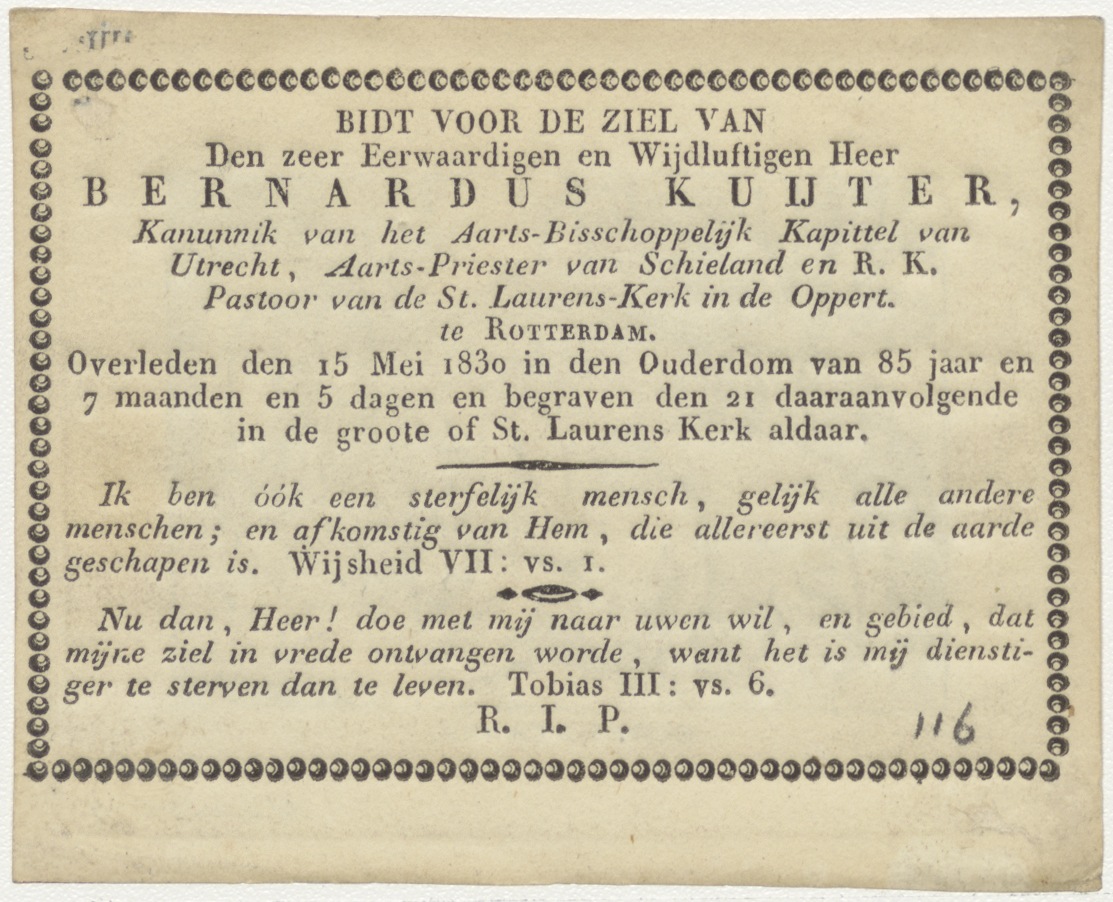 BIDT VOOR DE ZIEL VAN
Den zeer Eerwaardigen en Wijdluftigen Heer
BERNARDUS KUIJTER,
Kanunnik van het Aarts-Bisschoppelijk Kapittel van
Utrecht, Aarts-Priester van Schieland en R. K.
Pastoor van de St. Laurens-Kerk in de Oppert.
te ROTTERDAM.
Overleden den 15 Mei 1830 in den Ouderdom van 85 jaar en
7 maanden en 5 dagen en begraven den 21 daaraanvolgende
in de groote of St. Laurens Kerk aldaar.
Ik ben óók een sterfelijk mensch, gelijk alle andere
menschen; en afkomstig van Hem, die allereerst uit de aarde
geschapen is. Wijsheid VII: vs. 1.
Nu dan, Heer! doe met mij naar uwen wil, en gebied, dat
mijne ziel in vrede ontvangen worde, want het is mij diensti-
ger te sterven dan te leven. Tobias III: vs. 6.
R. I. P.
116